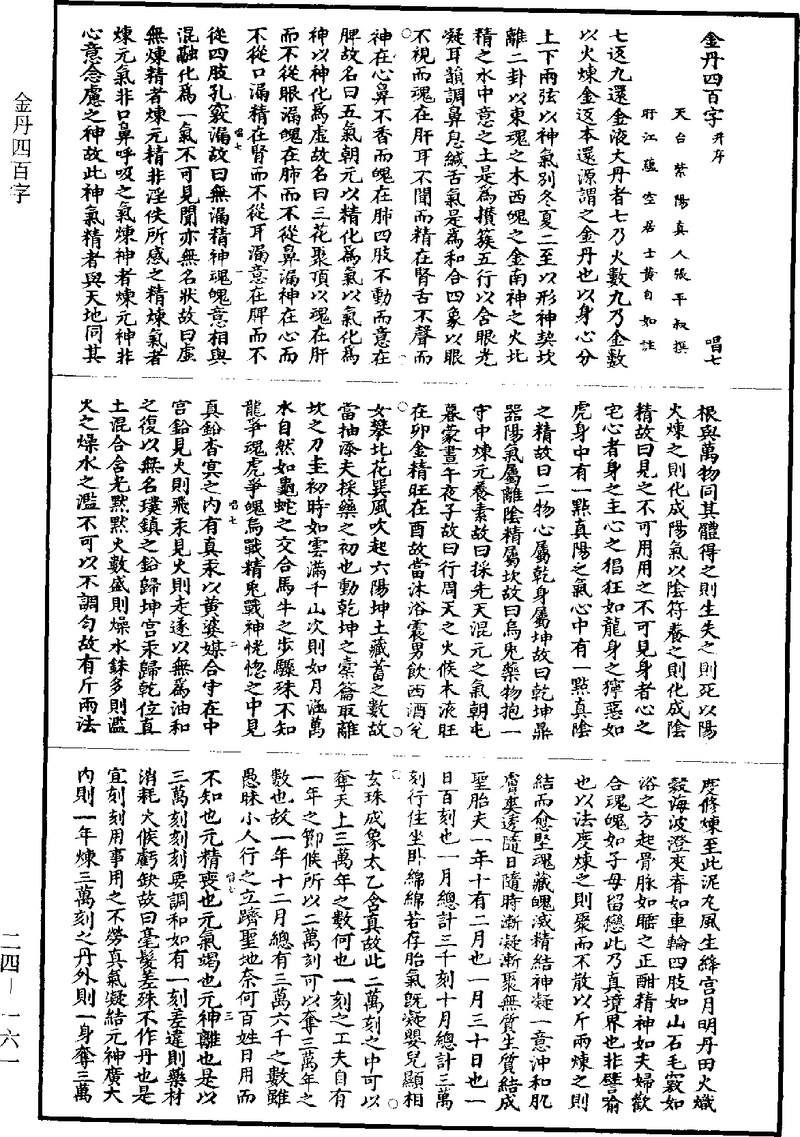 金丹四百字
二四—一六一
金丹四百字并序
唱七
天台紫陽真人張平叔撰
盱江蘊空居士黃自如註
七返九還金液大丹者七乃火數九乃金數
以火煉金返本還源謂之金丹也以身心分
上下兩弦以神氣別冬夏二至以形神契坎
離二卦以東魂之木西魄之金南神之火北
精之水中意之土是為攢簇五行以含眼光
凝耳韻調鼻息緘舌氣是為和合四象以眼
不視而魂在肝耳不聞而精在腎舌不聲而
神在心鼻不香而魄在肺四肢不動而意在
脾故名曰五氣朝元以精化為氣以氣化為
神以神化為虛故名曰三花聚頂以魂在肝
而不從眼漏魄在肺而不從鼻漏神在心而
不從口漏精在腎而不從耳漏意在脾而不
從四肢孔竅漏故曰無漏精神魂魄意相與
混融化為一氣不可見聞亦無名狀故曰虛
無煉精者煉元精非淫佚所感之精煉氣者
煉元氣非口鼻呼吸之氣煉神者煉元神非
心意念慮之神故此神氣精者與天地同其
唱七
一
根與萬物同其體得之則生失之則死以陽
火煉之則化成陽氣以陰符養之則化成陰
精故曰見之不可用用之不可見身者心之
宅心者身之主心之猖狂如龍身之獰惡如
虎身中有一點真陽之氣心中有一點真陰
之精故曰二物心屬乾身屬坤故曰乾坤鼎
器陽氣屬離陰精屬坎故曰烏兔藥物抱一
守中煉元養素故曰採先天混元之氣朝屯
暮蒙晝午夜子故曰行周天之火候木液旺
在卯金精旺在酉故當沐浴震男飲西酒兌
女攀北花巽風吹起六陽坤土藏蓄之數故
當抽添夫採藥之初也動乾坤之橐籥取離
坎之刀圭初時如雲滿千山次則如月涵萬
水自然如龜蛇之交合馬牛之步驟殊不知
龍爭魂虎爭魄烏戰精兔戰神恍惚之中見
真鉛杳冥之內有真汞以黃婆媒合守在中
宮鉛見火則飛汞見火則走遂以無為油和
之復以無名璞鎮之鉛歸坤宮汞歸乾位真
土混合含光默默火數盛則燥水銖多則濫
火之燥水之濫不可以不調勻故有斤兩法
唱七
二
度修煉至此泥丸風生絳宮月明丹田火熾
穀海波澄夾脊如車輪四肢如山石毛竅如
浴之方起骨脉如睡之正酣精神如夫婦歡
合魂魄如子母留戀此乃真境界也非譬喻
也以法度煉之則聚而不散以斤兩煉之則
結而愈堅魂藏魄滅精結神凝一意沖和肌
膚爽透隨日隨時漸凝漸聚無質生質結成
聖胎夫一年十有二月也一月三十日也一
日百刻也一月總計三千刻十月總計三萬
刻行住坐臥綿綿若存胎氣既凝嬰兒顯相
玄珠成象太乙含真故此二萬刻之中可以
奪天上三萬年之數何也一刻之工夫自有
一年之節候所以二萬刻可以奪三萬年之
數也故一年十二月總有三萬六千之數雖
愚昧小人行之立躋聖地奈何百姓日用而
不知也元精喪也元氣竭也元神離也是以
三萬刻刻刻要調和如有一刻差違則藥材
消耗火候虧缺故曰毫髮差殊不作丹也是
宜刻刻用事用之不勞真氣凝結元神廣大
內則一年煉三萬刻之丹外則一身奪三萬
唱七
三